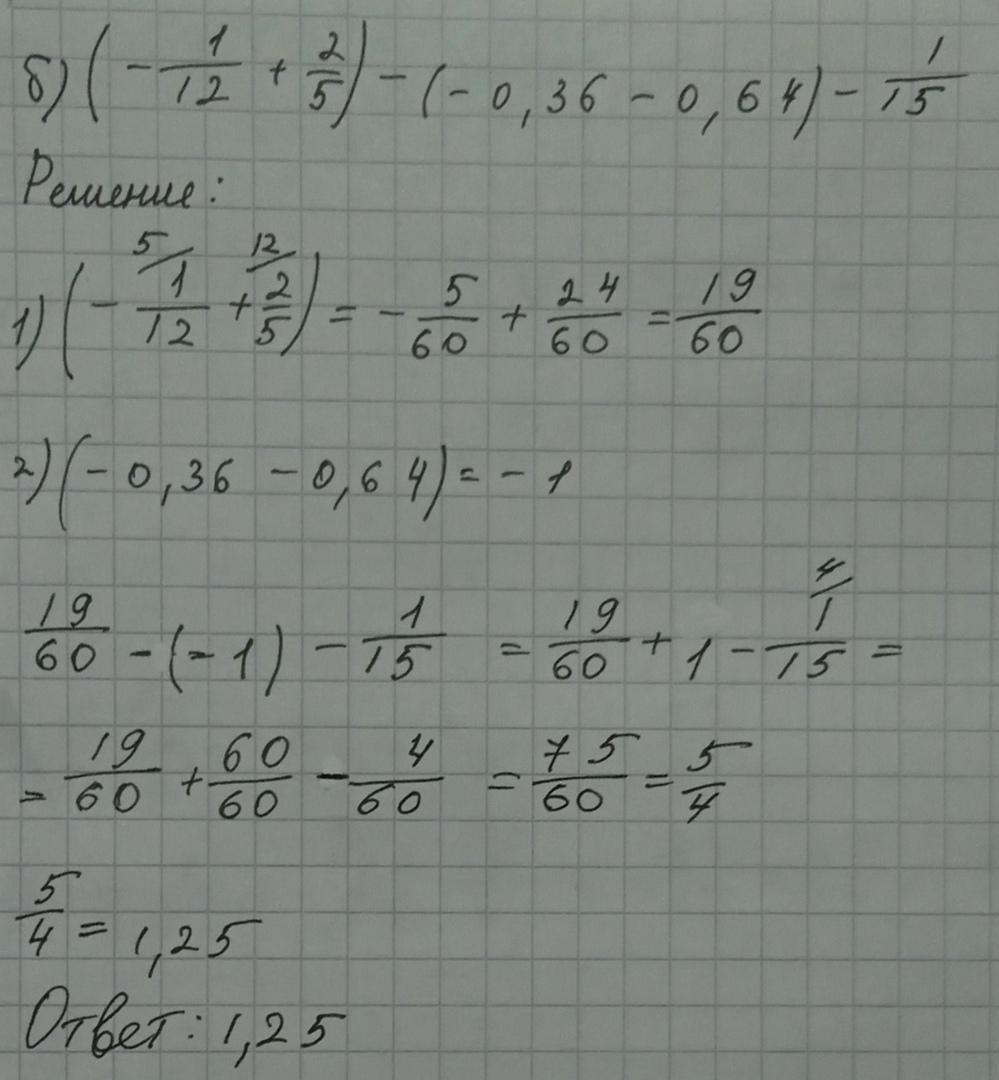 б) (- 1/12 + 2/5) - (- 0,36 - 0,64) - 1/15
Решение:
1) (- 5/ 1/12 + 12/ 2/5) = - 5/60 + 24/60 = 19/60
2) (- 0,36 - 0,64) = - 1
19/60 - (- 1) - 1/15 = 19/60 + 1 - 4/ 1/15 =
= 19/60 + 60/60 - 4/60 = 75/60 = 5/4
5/4 = 1,25
Ответ: 1,25